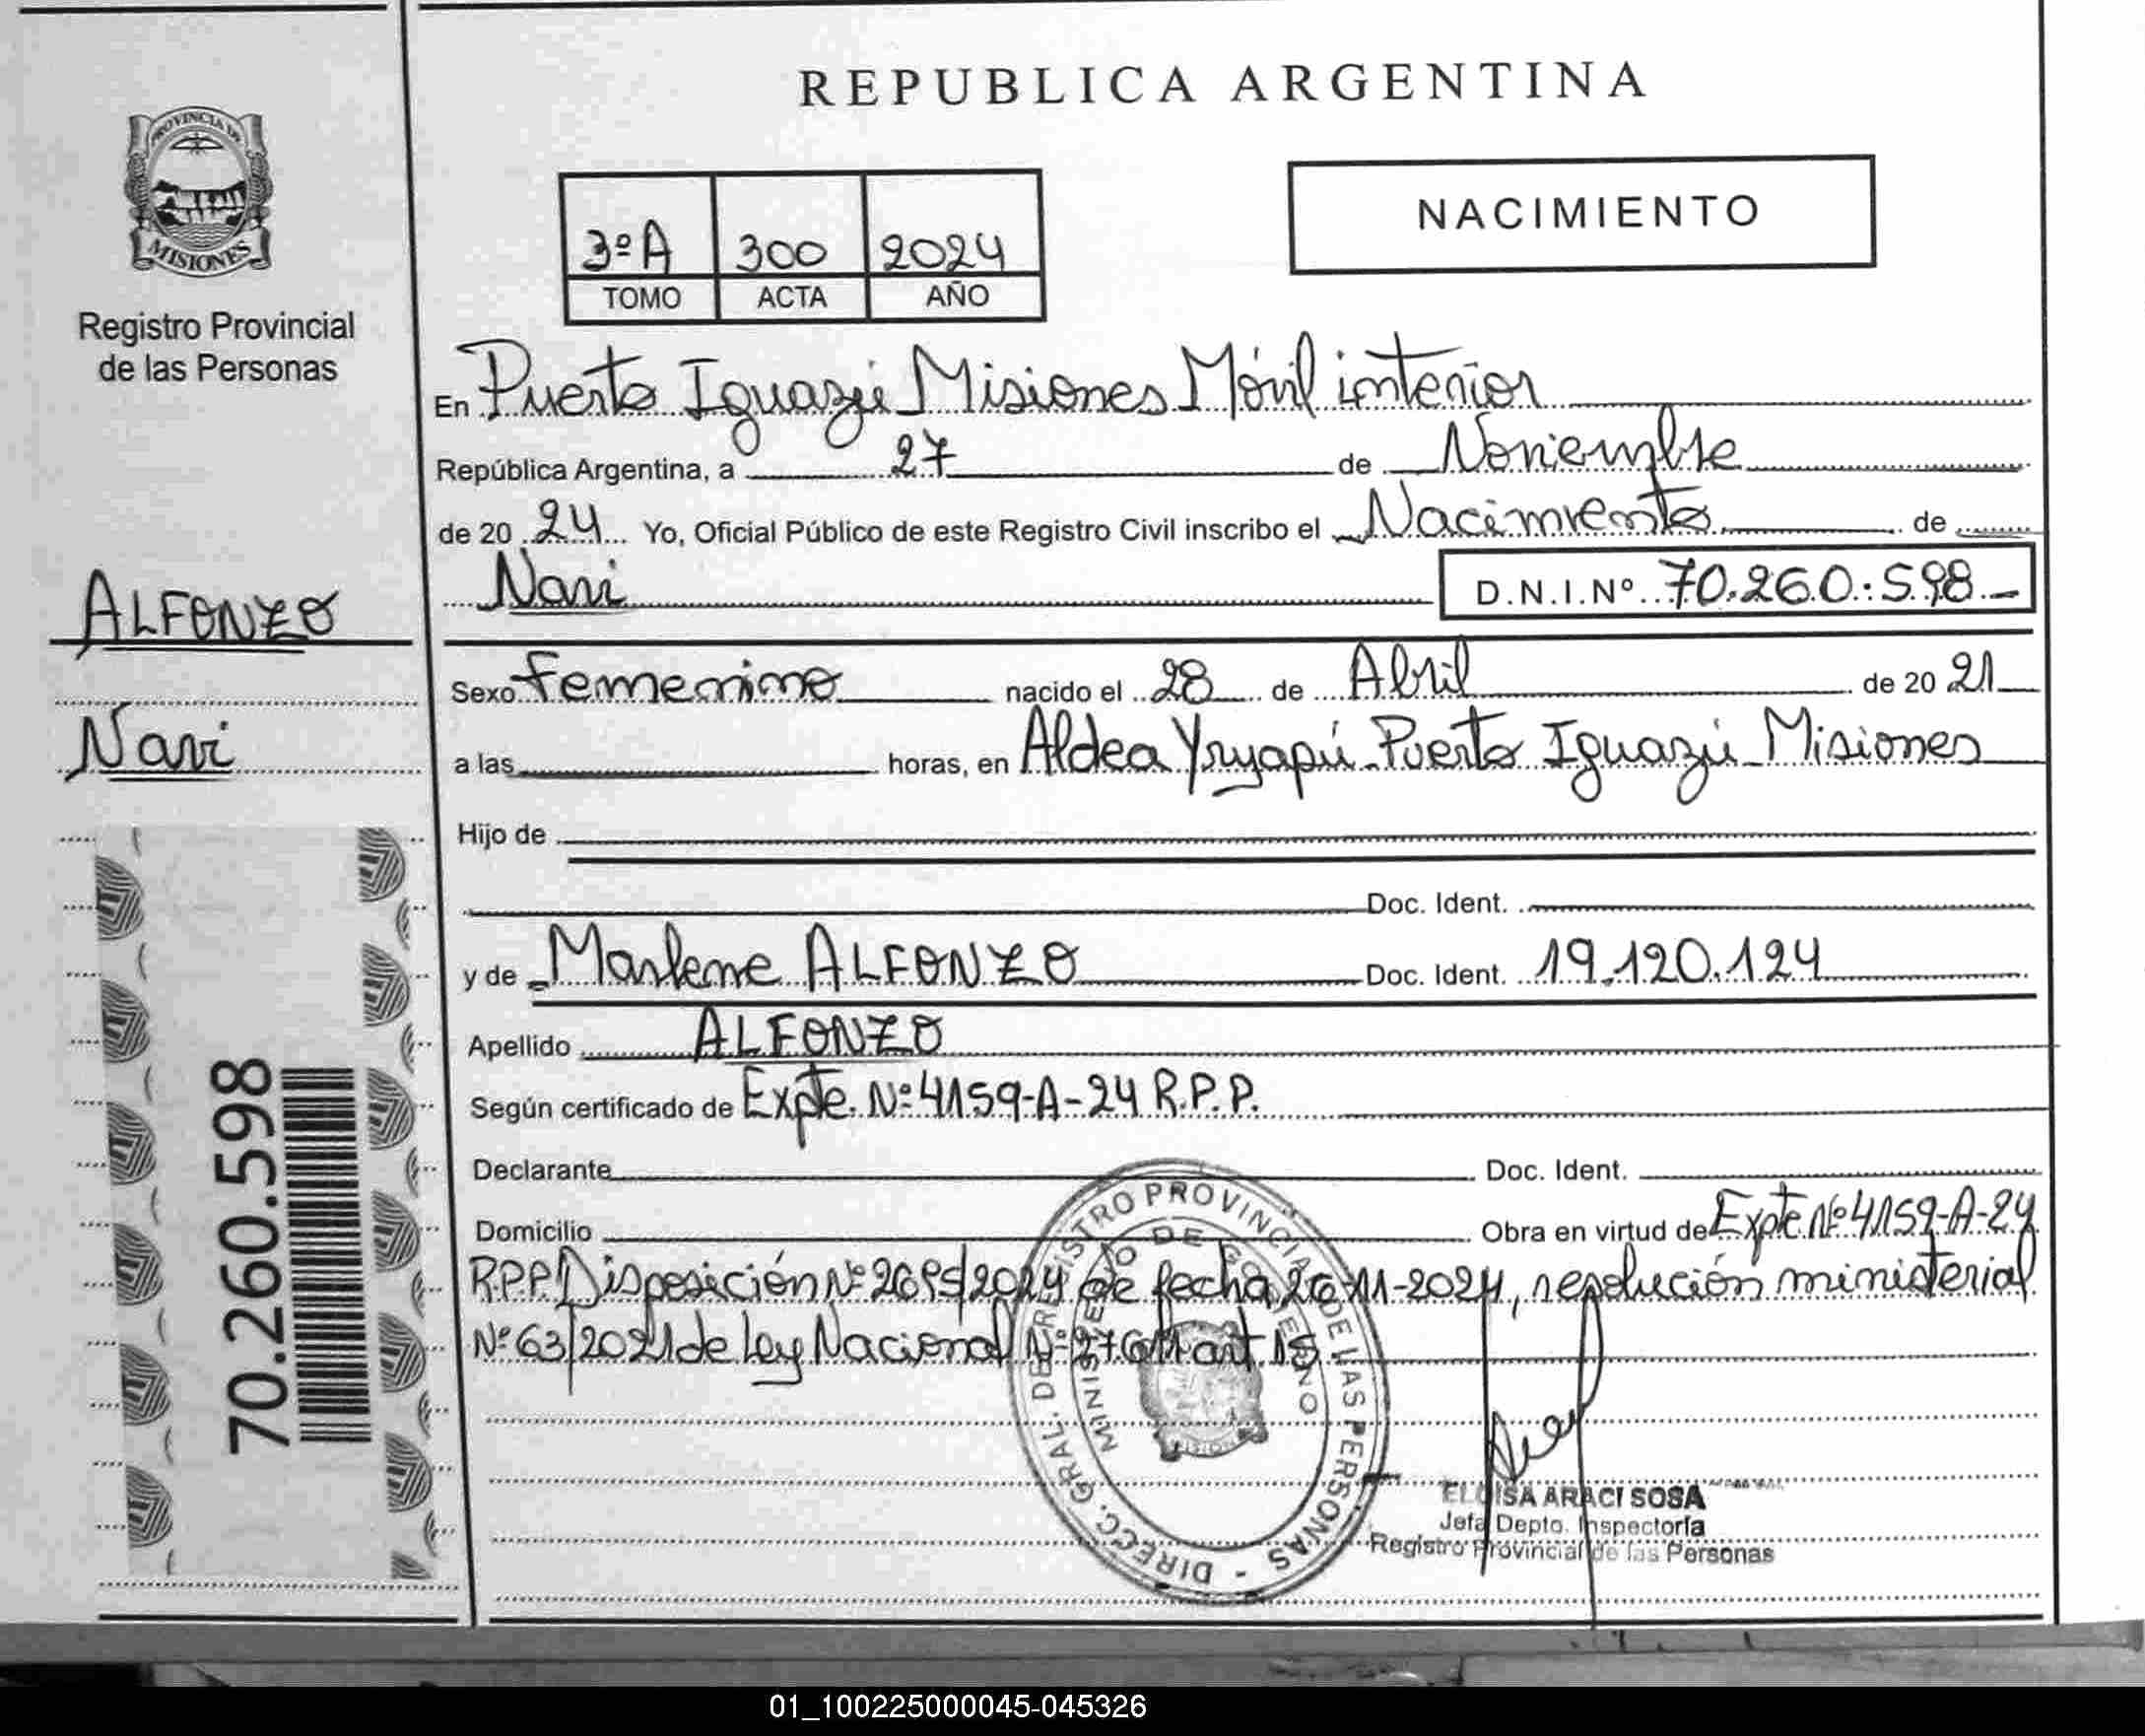 REPUBLICA ARGENTINA
PROVINCIA DE
MISIONES
Registro Provincial
de las Personas
3º A 300 2024
TOMO ACTA AÑO
NACIMIENTO
En Puerto Iguazú Misiones Móvil interior
República Argentina, a 27 de Noviembre
de 20 24 Yo, Oficial Público de este Registro Civil inscribo el Nacimiento de
Navi D.N.I.Nº 70.260.598
ALFONZO
Navi
Sexo femenino nacido el 28 de Abril de 20 21
a las horas, en Aldea Yryapú Puerto Iguazú Misiones
Hijo de
Doc. Ident.
y de Marlene ALFONZO Doc. Ident. 19.120.124
Apellido ALFONZO
Según certificado de Expte. Nº 4159-A-24 R.P.P.
Declarante Doc. Ident.
Domicilio Obra en virtud de Expte Nº 4159-A-24
R.P.P. Disposición Nº /2024 de fecha 26-11-2024, resolución ministerial
Nº 63/2021 de Ley Nacional Nº 27611 art. 15
70.260.598
DIRECC. GRAL. DE REGISTRO PROVINCIAL DE LAS PERSONAS -
MINISTERIO DE GOBIERNO
ELOISA ARACI SOSA
Jefa Depto. Inspectoría
Registro Provincial de las Personas
01_100225000045-045326